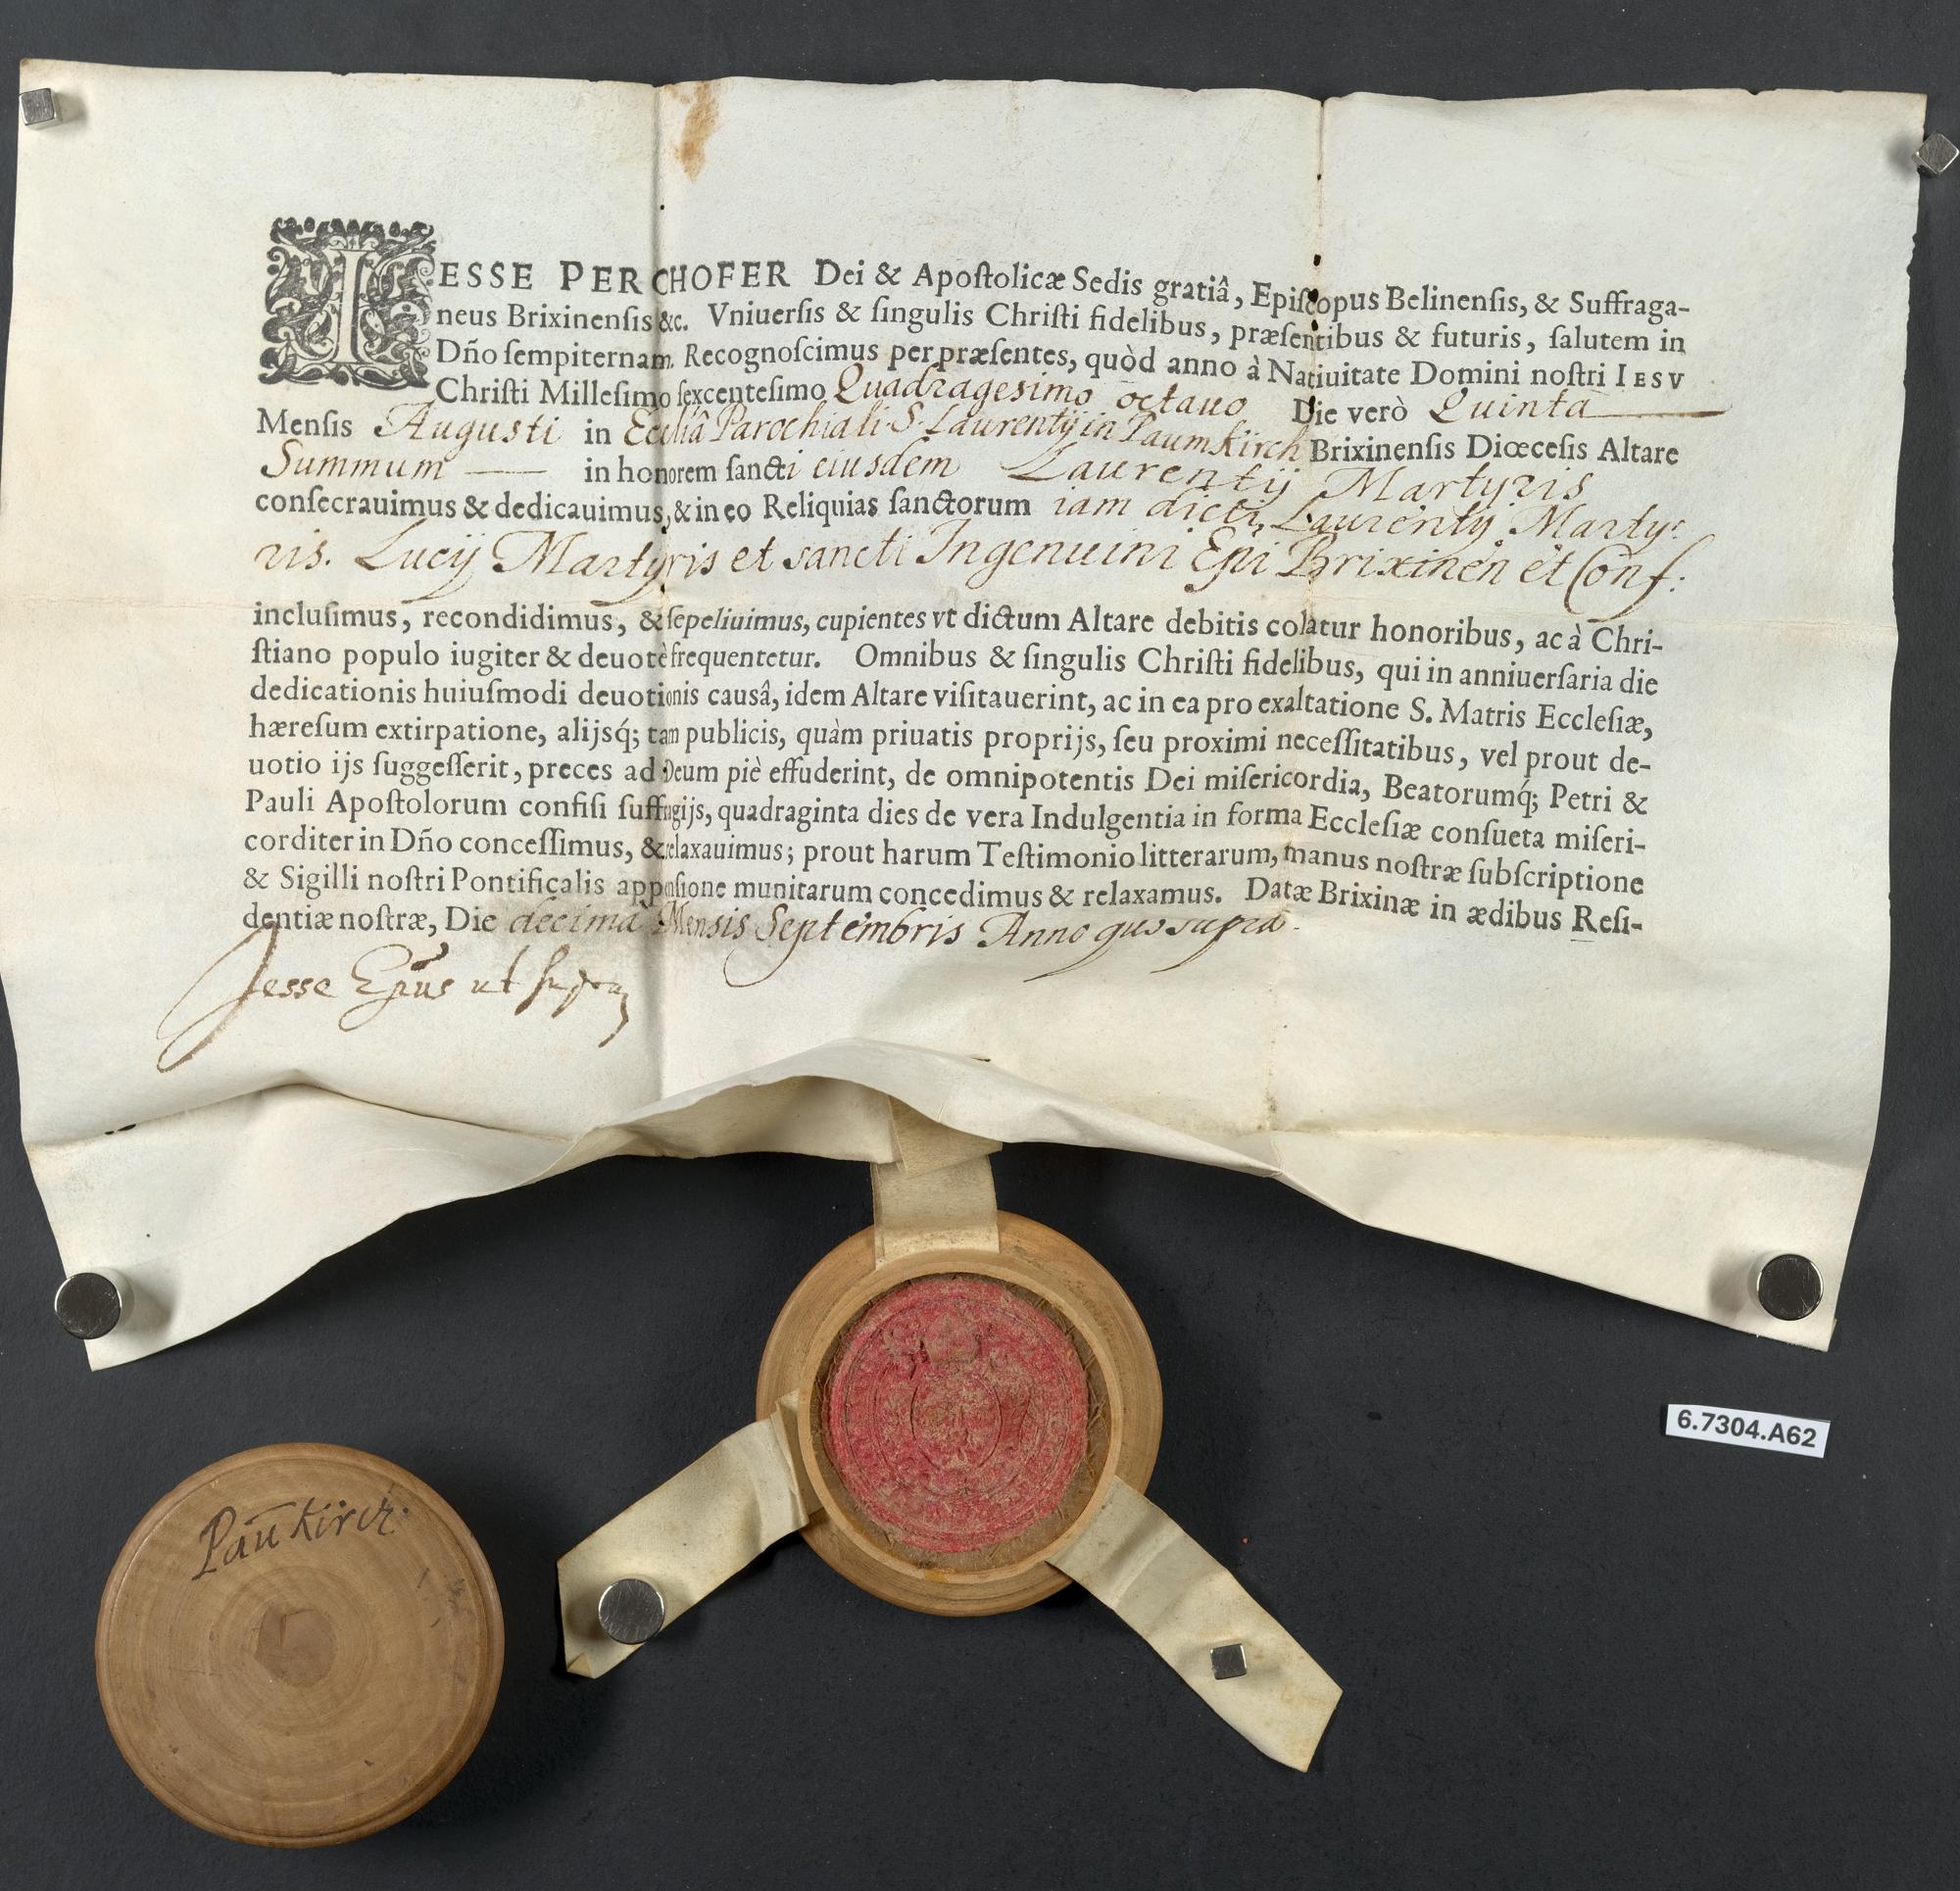 IESSE PERCHOFER Dei & Apoſtolicæ Sedis gratiâ, Epiſcopus Belinenſis, & Suffraga-
neus Brixinenſis &c. Vniuerſis & ſingulis Chriſti fidelibus, præſentibus & futuris, ſalutem in
Dño ſempiternam. Recognoſcimus per præſentes, quòd anno à Natiuitate Domini noſtri IESV
Chriſti Milleſimo ſexcenteſimo Quadragesimo octauo Die verò Quinta
Menſis Augusti in Eccliâ Parochiali S. Laurentij in Paumkirch Brixinenſis Diœceſis Altare
Summum in honorem ſancti eiusdem Laurentij Martyris
conſecrauimus & dedicauimus, & in eo Reliquias ſanctorum iam dicti Laurentij Marty:
ris. Lucij Martyris et sancti Ingenuini Epi Brixinen et Conf:
incluſimus, recondidimus, & ſepeliuimus, cupientes vt dictum Altare debitis colatur honoribus, ac à Chri-
ſtiano populo iugiter & deuotè frequentetur. Omnibus & ſingulis Chriſti fidelibus, qui in anniuerſaria die
dedicationis huiuſmodi deuotionis causâ, idem Altare viſitauerint, ac in ea pro exaltatione S. Matris Eccleſiæ,
hæreſum extirpatione, alijsq́; tam publicis, quàm priuatis proprijs, ſeu proximi neceſſitatibus, vel prout de-
uotio ijs ſuggeſſerit, preces ad Deum piè effuderint, de omnipotentis Dei miſericordia, Beatorumq́; Petri &
Pauli Apoſtolorum confiſi ſuffragijs, quadraginta dies de vera Indulgentia in forma Eccleſiæ conſueta miſeri-
corditer in Dño conceſſimus, & relaxauimus; prout harum Teſtimonio litterarum, manus noſtræ ſubſcriptione
& Sigilli noſtri Pontificalis appenſione munitarum concedimus & relaxamus. Datæ Brixinæ in ædibus Reſi-
dentiæ noſtræ, Die decima Mensis Septembris Anno quo supra.
Jesse Epus ut supra
6.7304.A62
Paūkirch.